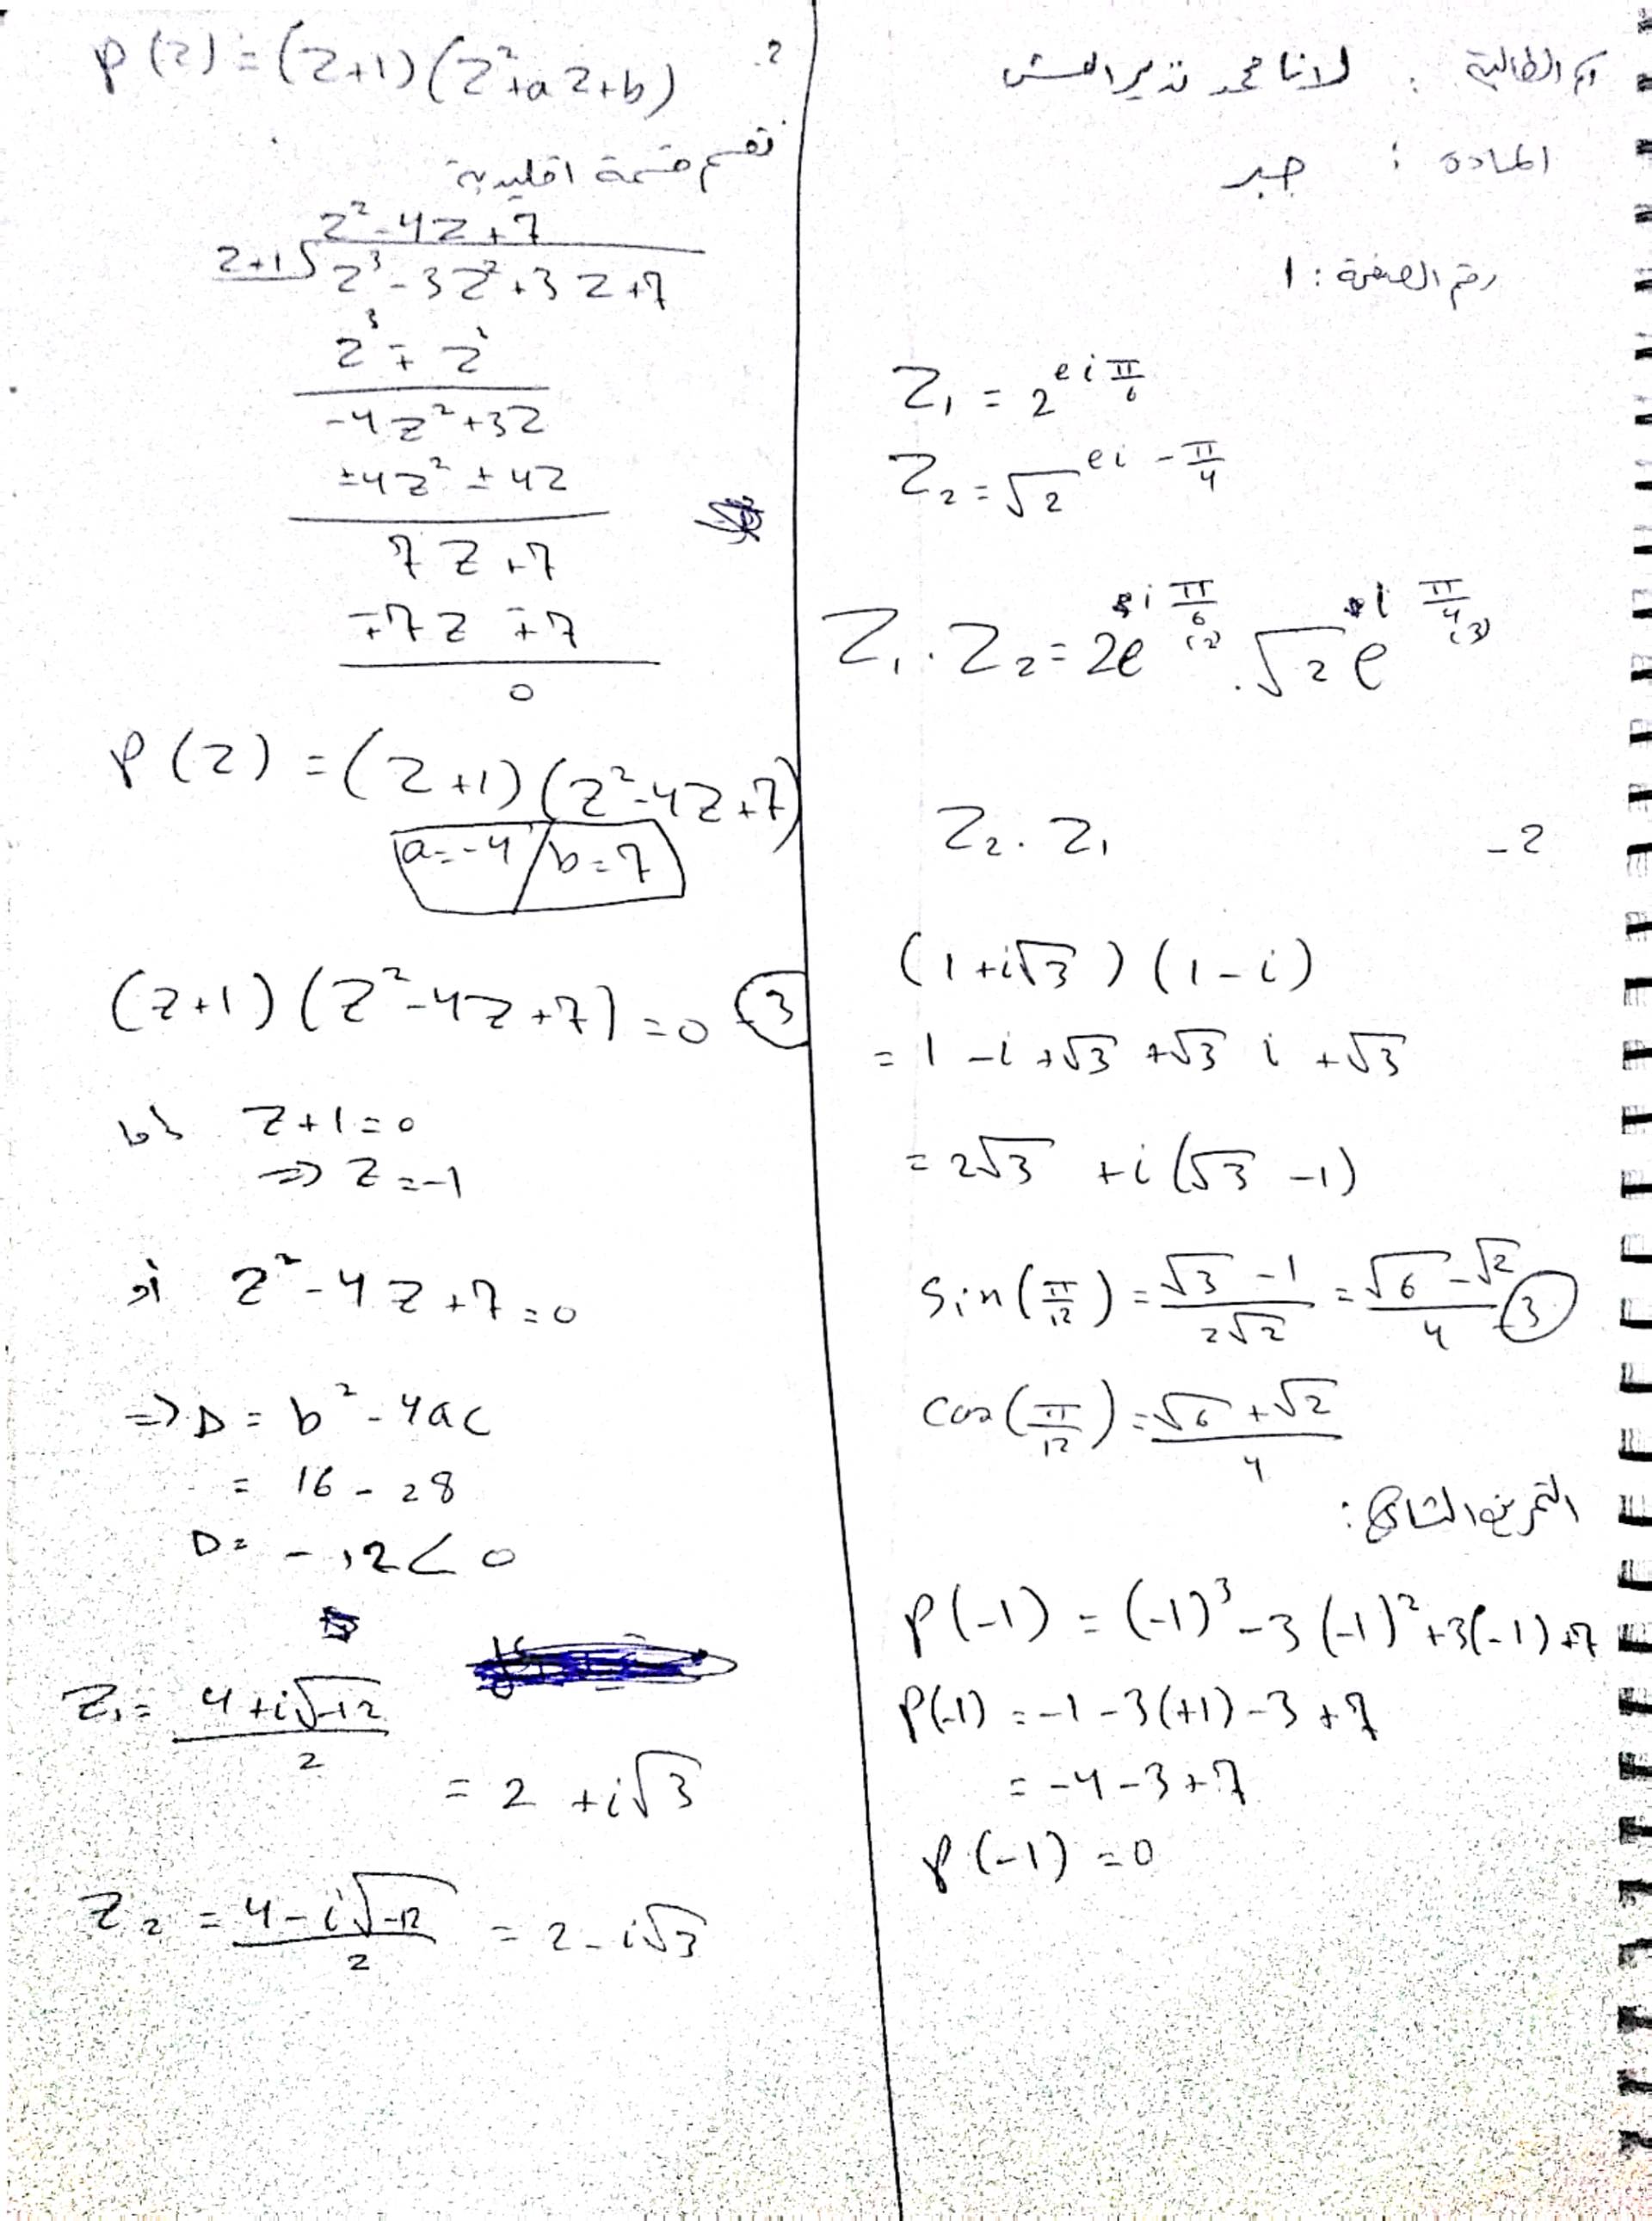 اسم الطالبة : لانا محمد نذير
المادة : جبر
رقم الصفحة : 1
Z₁ = 2^{ei π/6}
Z₂ = √2^{ei - π/4}
Z₁ . Z₂ = 2e^{i π/6 (2)} . √2 e^{i π/4 (3)}
2- Z₂ . Z₁
(1 + i√3) (1 - i)
= 1 - i + √3 + √3 i + √3
= 2√3 + i (√3 - 1)
sin(π/12) = (√3 - 1)/(2√2) = (√6 - √2)/4 -3
cos(π/12) = (√6 + √2)/4
التمرين الثاني :
P(-1) = (-1)³ - 3(-1)² + 3(-1) + 7
P(-1) = -1 - 3(+1) - 3 + 7
= -4 - 3 + 7
P(-1) = 0
P(z) = (z+1)(z² + az + b) .2
نقسم قسمة اقليدية
z² - 4z + 7
z+1 √ z³ - 3z² + 3z + 7
z³ ∓ z²
-4z² + 3z
±4z² ± 4z
7z + 7
∓7z ∓ 7
0
P(z) = (z+1)(z² - 4z + 7)
a = -4 / b = 7
(z+1)(z² - 4z + 7) = 0 -3
إما z + 1 = 0
⇒ z = -1
أو z² - 4z + 7 = 0
⇒ D = b² - 4ac
= 16 - 28
D = -12 < 0
z₁ = (4 + i√-12)/2
= 2 + i√3
z₂ = (4 - i√-12)/2 = 2 - i√3